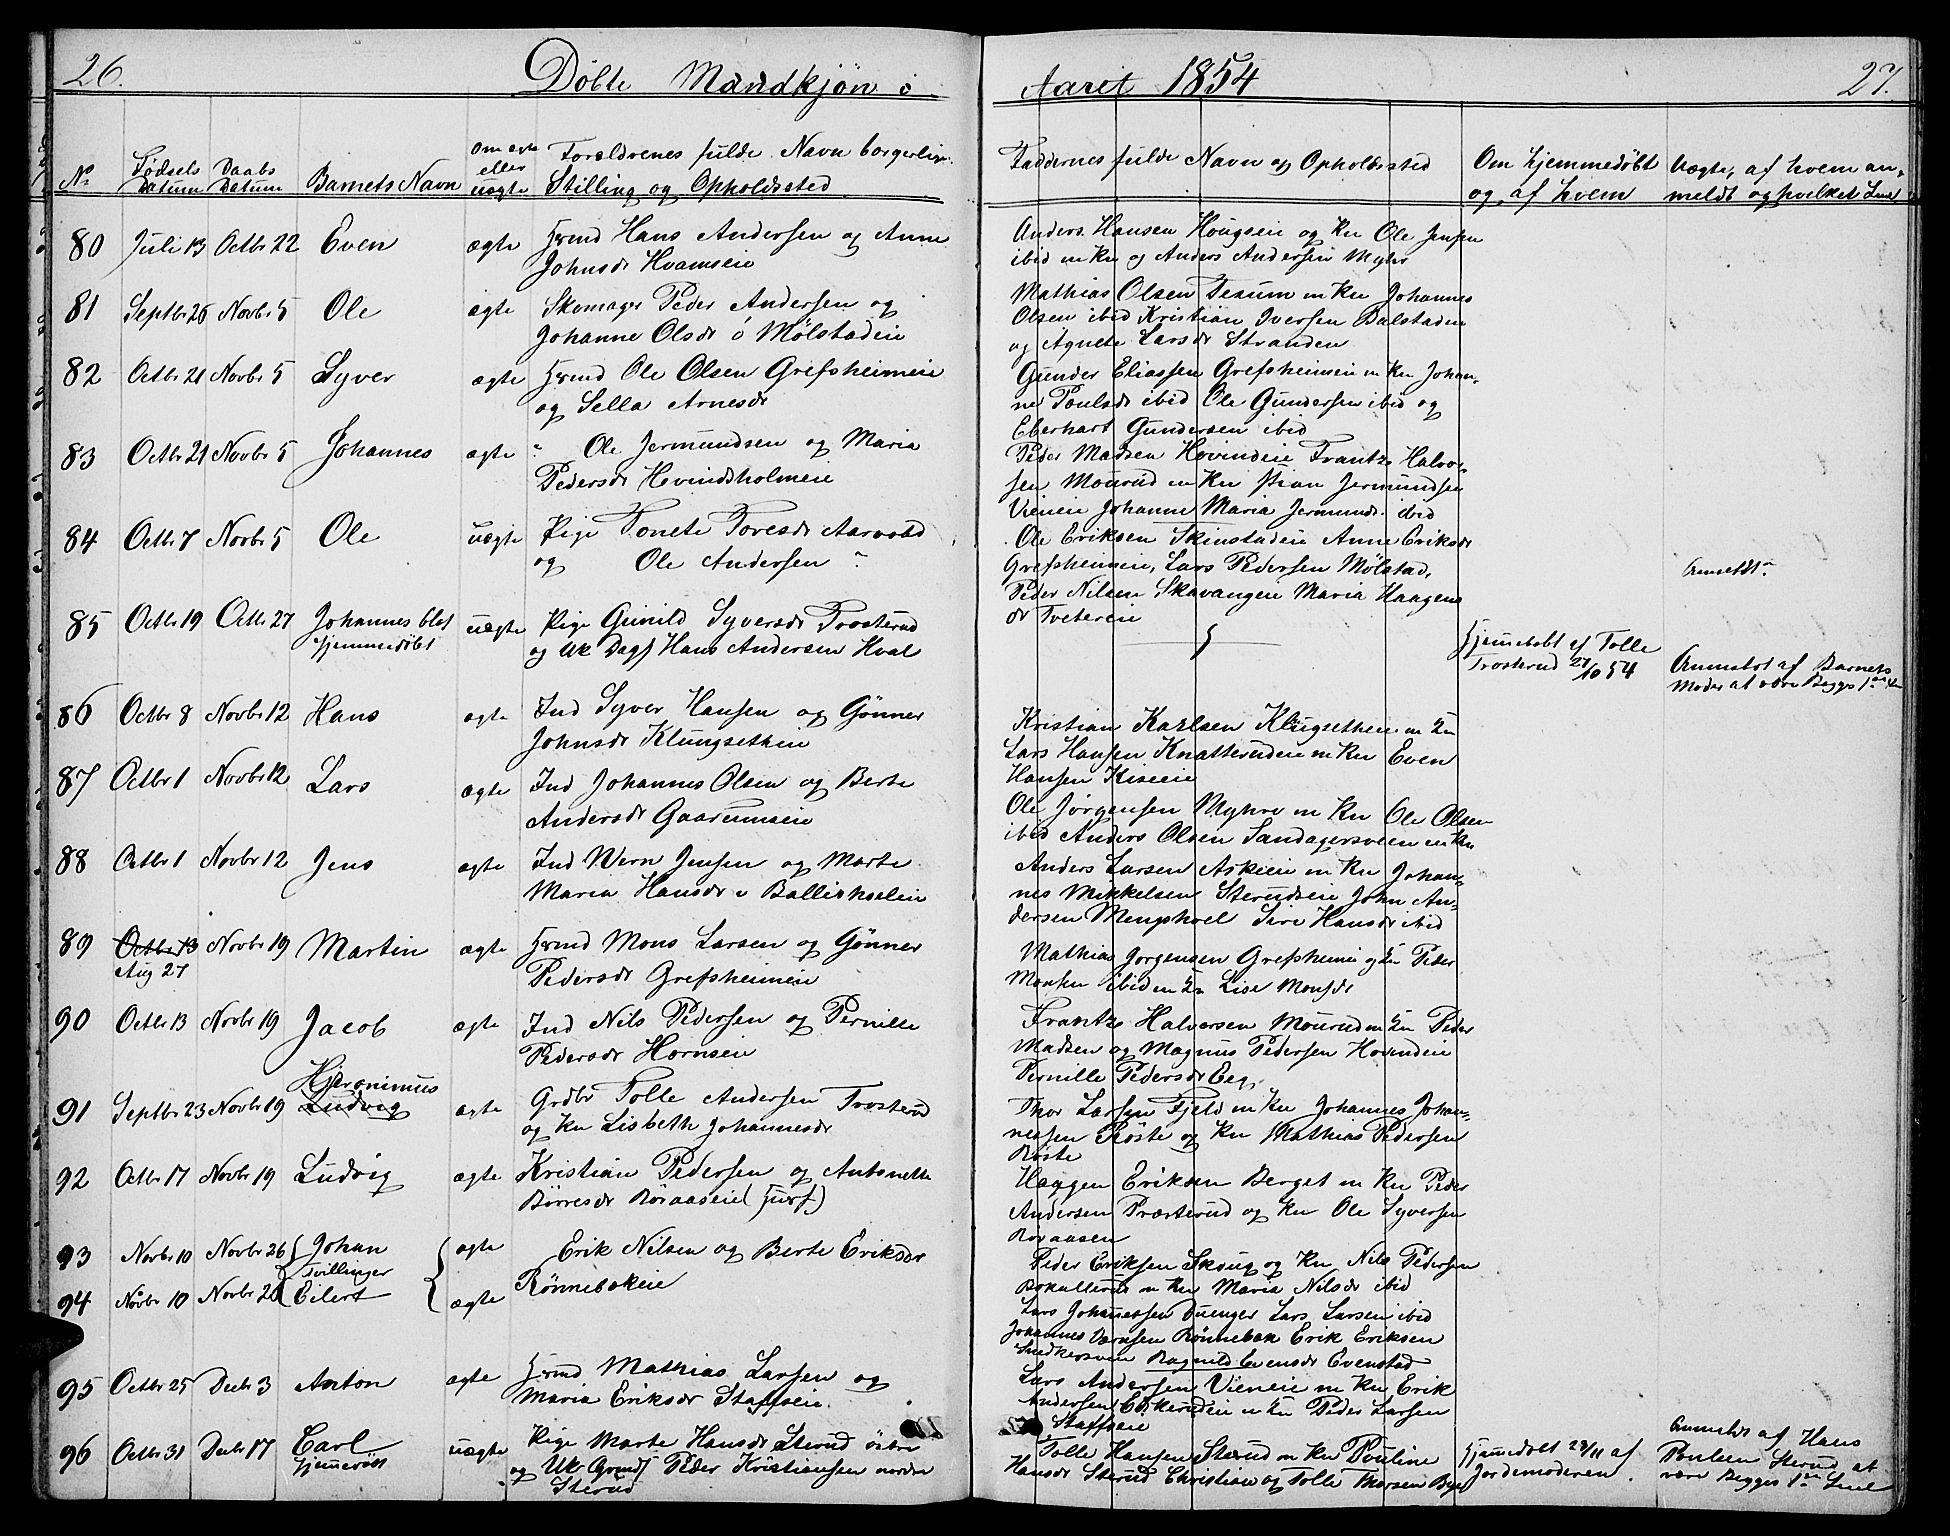 26.
Döbte Mandkjön i
Aaret 1854
27.
No
Födsels Datum
Daabs Datum
Barnets Navn
Om ægte eller uægte
Forældrenes fulde Navn borgerlige
Stilling og Opholdssted
Faddernes fulde Navn og Opholdssted
Om hjemmedöbt
og af hvem
Uægte, af hvem an-
meldt og hvilket Leie
80 Juli 13 Octbr 22 Even ægte Hmd Hans Andersen og Anne
Johnsdr Hvamseie
Anders Hansen Hougseie og Kn Ole Jensen
ibid m Kn og Anders Andersen Myhr
81 Septbr 26 Novbr 5 Ole ægte Skomager Peder Andersen og
Johanne Olsdr i Mölstadeie
Mathias Olsen Tesum m Kn Johannes
Olsen ibid Kristian Iversen Balstaden
og Agnete Larsdr Stranden
82 Octbr 21 Novbr 5 Syver ægte Hmd Ole Olsen Grefsheimeie
og Sella Arnesdr
Gunder Eliassen Grefsheimeie m Kn Johan-
ne Poulsdr ibid Ole Gundersen ibid og
Eberhart Gundersen ibid
83 Octbr 21 Novbr 5 Johannes ægte " Ole Jermundsen og Maria
Pedersdr Hovindsholmeie
Peder Madsen Hovindeie Frantz Halvor-
sen Mourud m Kn Stian Jermundsen
Vieneie Johanne Maria Jermunds. ibid
84 Octbr 7 Novbr 5 Ole uægte Pige Tonete Toresdr Aarvold
og Ole Andersen "
Ole Eriksen Skinstadeie Anne Eriksdr
Grefsheimeie, Lars Pedersen Mölstad,
Peder Nilsen Skavangeie Maria Haagens
dr Tvetereie
Anmeldt "
85 Octbr 19 Octbr 27 Johannes blef
hjemmedöbt
uægte Pige Gunild Syversdr Trosterud
og Uk Dagj Hans Andersen Hval
Hjemedobt af Tolle
Trosterud 27/10 54
Anmeldt af Barnets
Moder at være Begges 1ste Leie
86 Octbr 8 Novbr 12 Hans ægte Ind Syver Hansen og Gönner
Johnsdr Klungsetheie
Kristian Karlsen Klugsetheie m Kn
Lars Hansen Knatterudeie m Kn Even
Hansen Kiseeie
87 Octbr 1 Novbr 12 Lars ægte Ind Johannes Olsen og Berte
Andersdr Gaarumseie
Ole Jörgensen Myhre m Kn Ole Olsen
ibid Anders Olsen Sandagersveen m Kn
88 Octbr 1 Novbr 12 Jens ægte Ind Wern Jensen og Marte
Maria Hansdr i Ballishoeleie
Anders Larsen Askeie m Kn Johan-
nes Mikkelsen Sterudseie John An-
dersen Mengshoel Siri Hansdr ibid
89 Octbr 13 Novbr 19 Martin ægte Hmd Mons Larsen og Gönner
Aug 27
Pedersdr Grefsheimeie
Mathias Jorgensen Grefsheimeie og Kn Peder
Monsen ibid m Kn Lise Monsdr
90 Octbr 13 Novbr 19 Jacob ægte Ind Nils Pedersen og Pernille
Pedersdr Hornseie
Frantz Halvorsen Mourud m Kn Peder
Madsen og Magnus Pedersen Hovindeie
Pernille Pedersdr Eeg
91 Septbr 23 Novbr 19 Hjeronimus
Ludvig
ægte Grdbr Tolle Andersen Trosterud
og Kn Lisbeth Johannesdr
Thor Larsen Fjeld m Kn Johannes Johan-
nessen Röste og Kn Mathias Pedersen
Röste
92 Octbr 17 Novbr 19 Ludvig ægte Kristian Pedersen og Antonette
Börresdr Roraaseie
Haagen Eriksen Berget m Kn Peder
Andersen Præsterud og Kn Ole Syversen
Roraasen
93 Novbr 10 Novbr 26 Johan ægte Erik Nilsen og Berte Eriksdr
Tvillinger
94 Novbr 10 Novbr 26 Eilert ægte
Rönnebækeie
Peder Eriksen Skoug og Kn Nils Pedersen
m Kn Maria Nilsdr ibid
Lars Johannessen Duenger Lars Larsen ibid
Johannes Værnsen Rönnebæk Erik Eriksen
Snekersveen Ragnild Evensdr Evenstad
95 Octbr 25 Decbr 3 Anton ægte Hmd Mathias Larsen og
Maria Eriksdr Staffseie
Lars Andersen Vieneie m Kn Erik
Andersen m Kn Peder Larsen
Staffseie
96 Octbr 31 Decbr 17 Carl
hjemedöbt
uægte Pige Marte Hansdr Sterud östre
og Uk Grmdj Peder Kristiansen nordre
Sterud
Tolle Hansen Sterud m Kn Pouline
Hansdr Sterud Christian og Tolle Thorsen
Hjemedobt 28/11 af
Jordemoderen
Anmeldt af Hans
Poulsen Sterud at
være Begges 1ste Leie